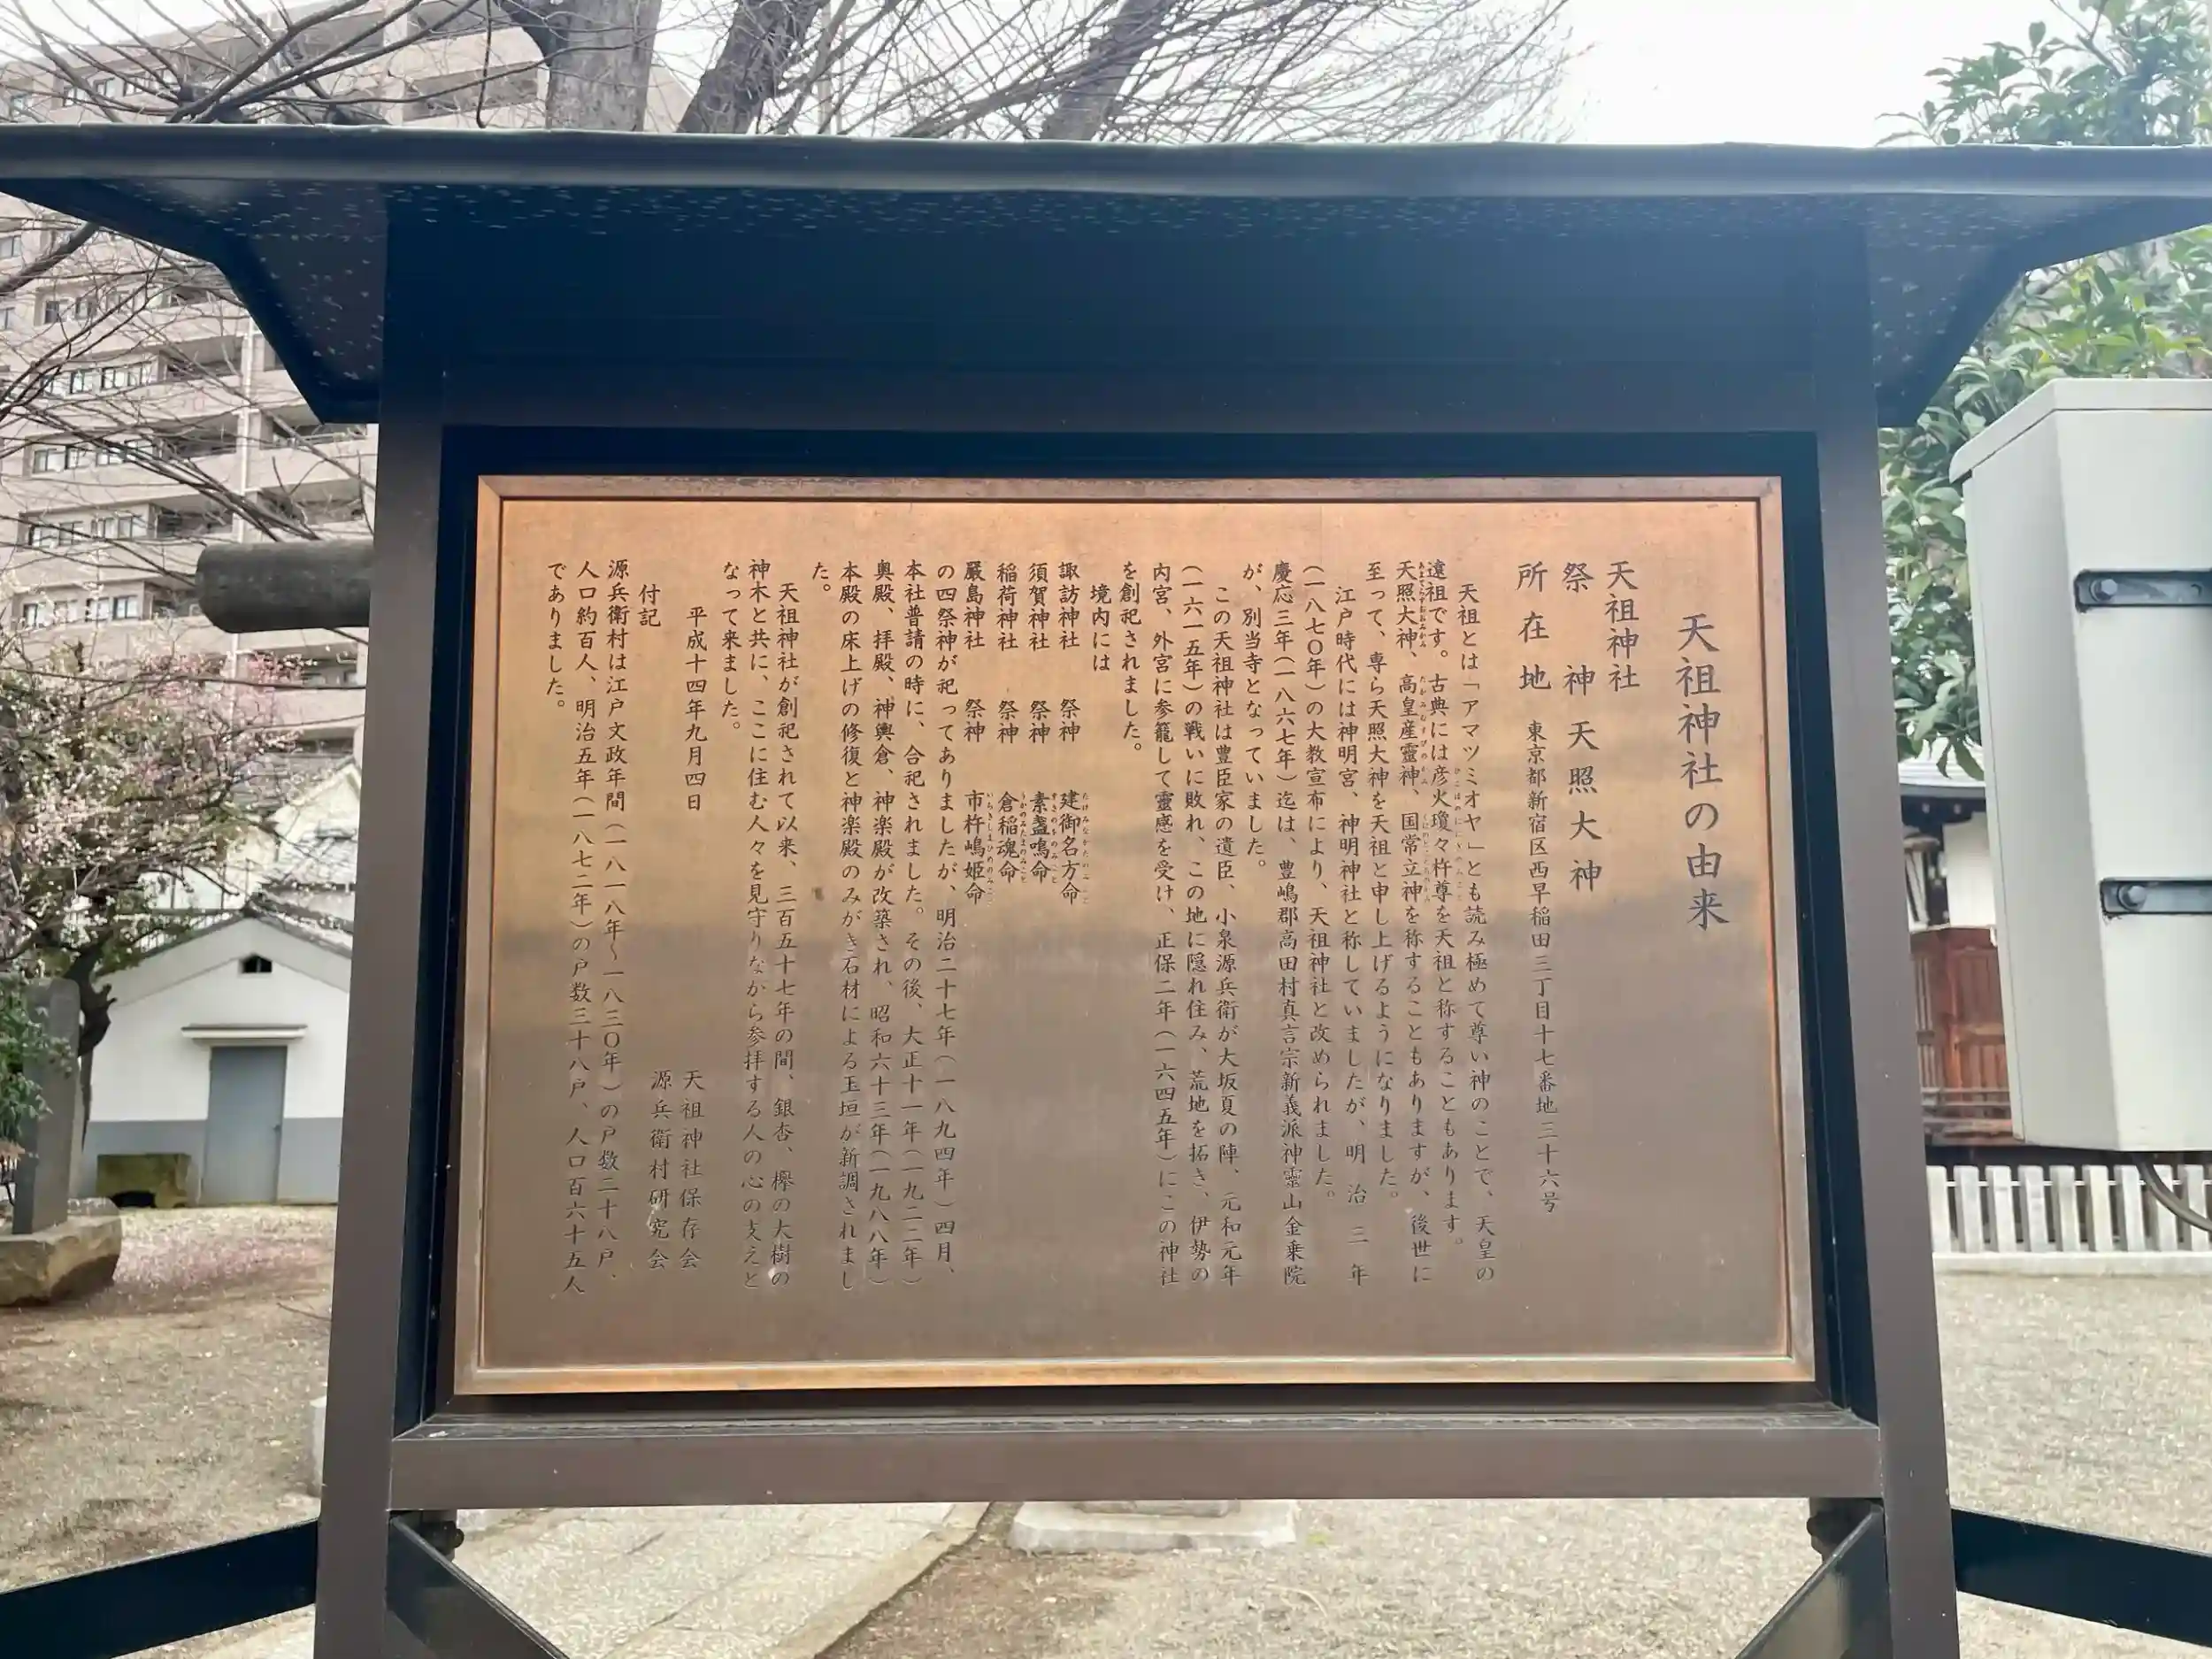 天祖神社の由来
天祖神社
祭神 天照大神
所在地 東京都新宿区西早稲田三丁目十七番地三十六号
天祖とは「アマツミオヤ」とも読み極めて尊い神のことで、天皇の
遠祖です。古典には彦火瓊々杵尊を天祖と称することもあります。
天照大神、高皇産靈神、国常立神を称することもありますが、後世に
至って、専ら天照大神を天祖と申し上げるようになりました。
江戸時代には神明宮、神明神社と称していましたが、明治三年
(一八七〇年)の大教宣布により、天祖神社と改められました。
慶応三年(一八六七年)迄は、豊嶋郡高田村真言宗新義派神靈山金乗院
が、別当寺となっていました。
この天祖神社は豊臣家の遺臣、小泉源兵衛が大坂夏の陣、元和元年
(一六一五年)の戦いに敗れ、この地に隠れ住み、荒地を拓き、伊勢の
内宮、外宮に参籠して靈感を受け、正保二年(一六四五年)にこの神社
を創祀されました。
境内には
諏訪神社 祭神 建御名方命
須賀神社 祭神 素盞嗚命
稲荷神社 祭神 倉稲魂命
厳島神社 祭神 市杵嶋姫命
の四祭神が祀ってありましたが、明治二十七年(一八九四年)四月、
本社普請の時に、合祀されました。その後、大正十一年(一九二二年)
奥殿、拝殿、神輿倉、神楽殿が改築され、昭和六十三年(一九八八年)
本殿の床上げの修復と神楽殿のみがき石材による玉垣が新調されまし
た。
天祖神社が創祀されて以来、三百五十七年の間、銀杏、欅の大樹の
神木と共に、ここに住む人々を見守りながら参拝する人の心の支えと
なって来ました。
平成十四年九月四日
天祖神社保存会
源兵衛村研究会
付記
源兵衛村は江戸文政年間(一八一八年～一八三〇年)の戸数二十八戸、
人口約百人、明治五年(一八七二年)の戸数三十八戸、人口百六十五人
でありました。